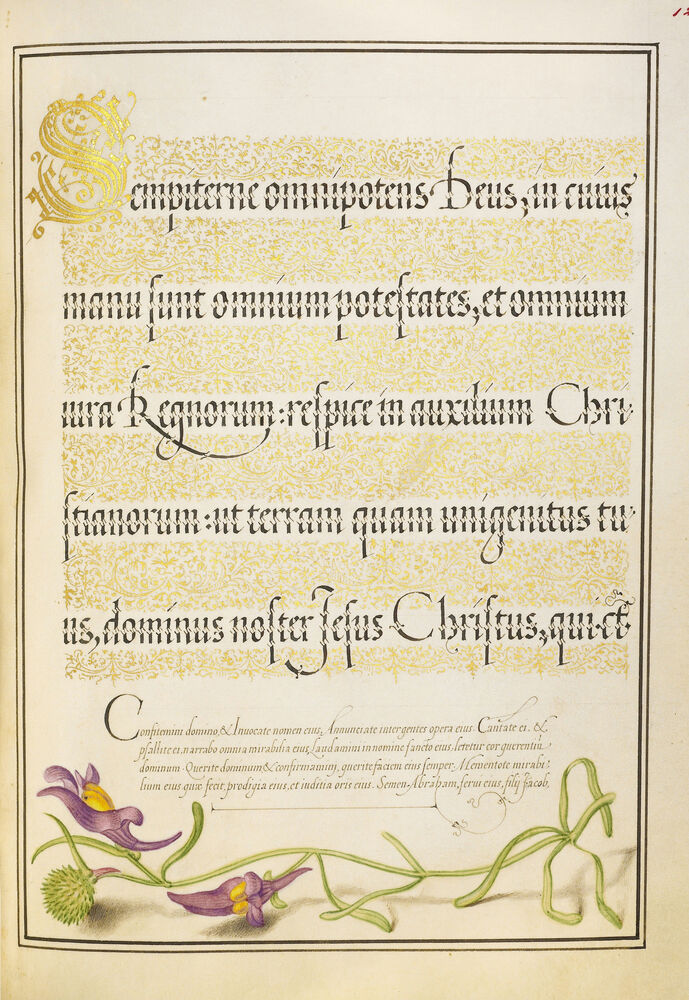 12
Sempiterne omnipotens Deus, in cuius
manu sunt omnium potestates, et omnium
iura Regnorum: respice in auxilium Chri-
stianorum: ut terram quam unigenitus tu-
us, dominus noster Jesus Christus, qui est
Confitemini domino, & Invocate nomen eius, Annunciate inter gentes opera eius. Cantate ei, &
psallite ei, narrabo omnia mirabilia eius, Laudamini in nomine sancto eius, letetur cor querentiū
dominum. Querite dominum & confirmamini, querite faciem eius semper. Mementote mirabi-
lium eius quæ fecit, prodigia eius, et iuditia oris eius. Semen Abraham, servi eius, filij Jacob,